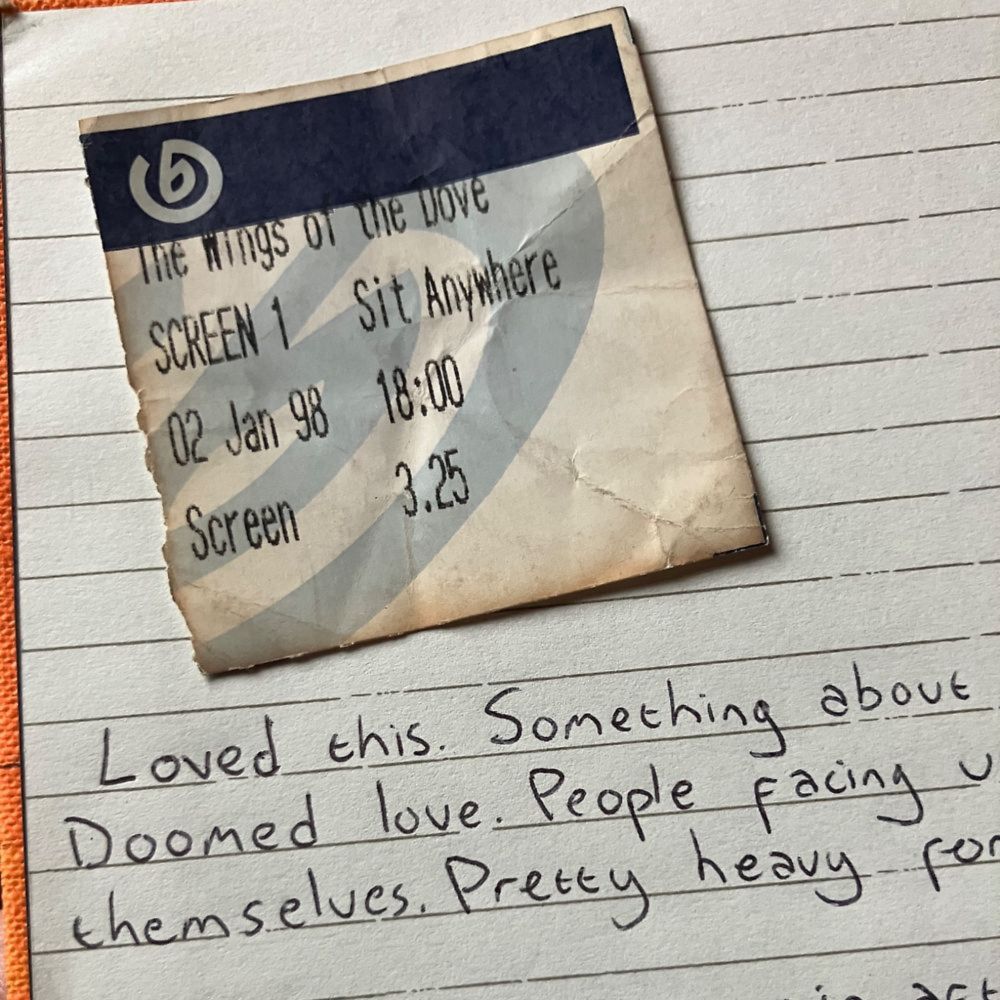 b
The Wings of the Dove
SCREEN 1 Sit Anywhere
02 Jan 98 18:00
Screen 3.25
Loved this. Something about
Doomed love. People facing
themselves. Pretty heavy for